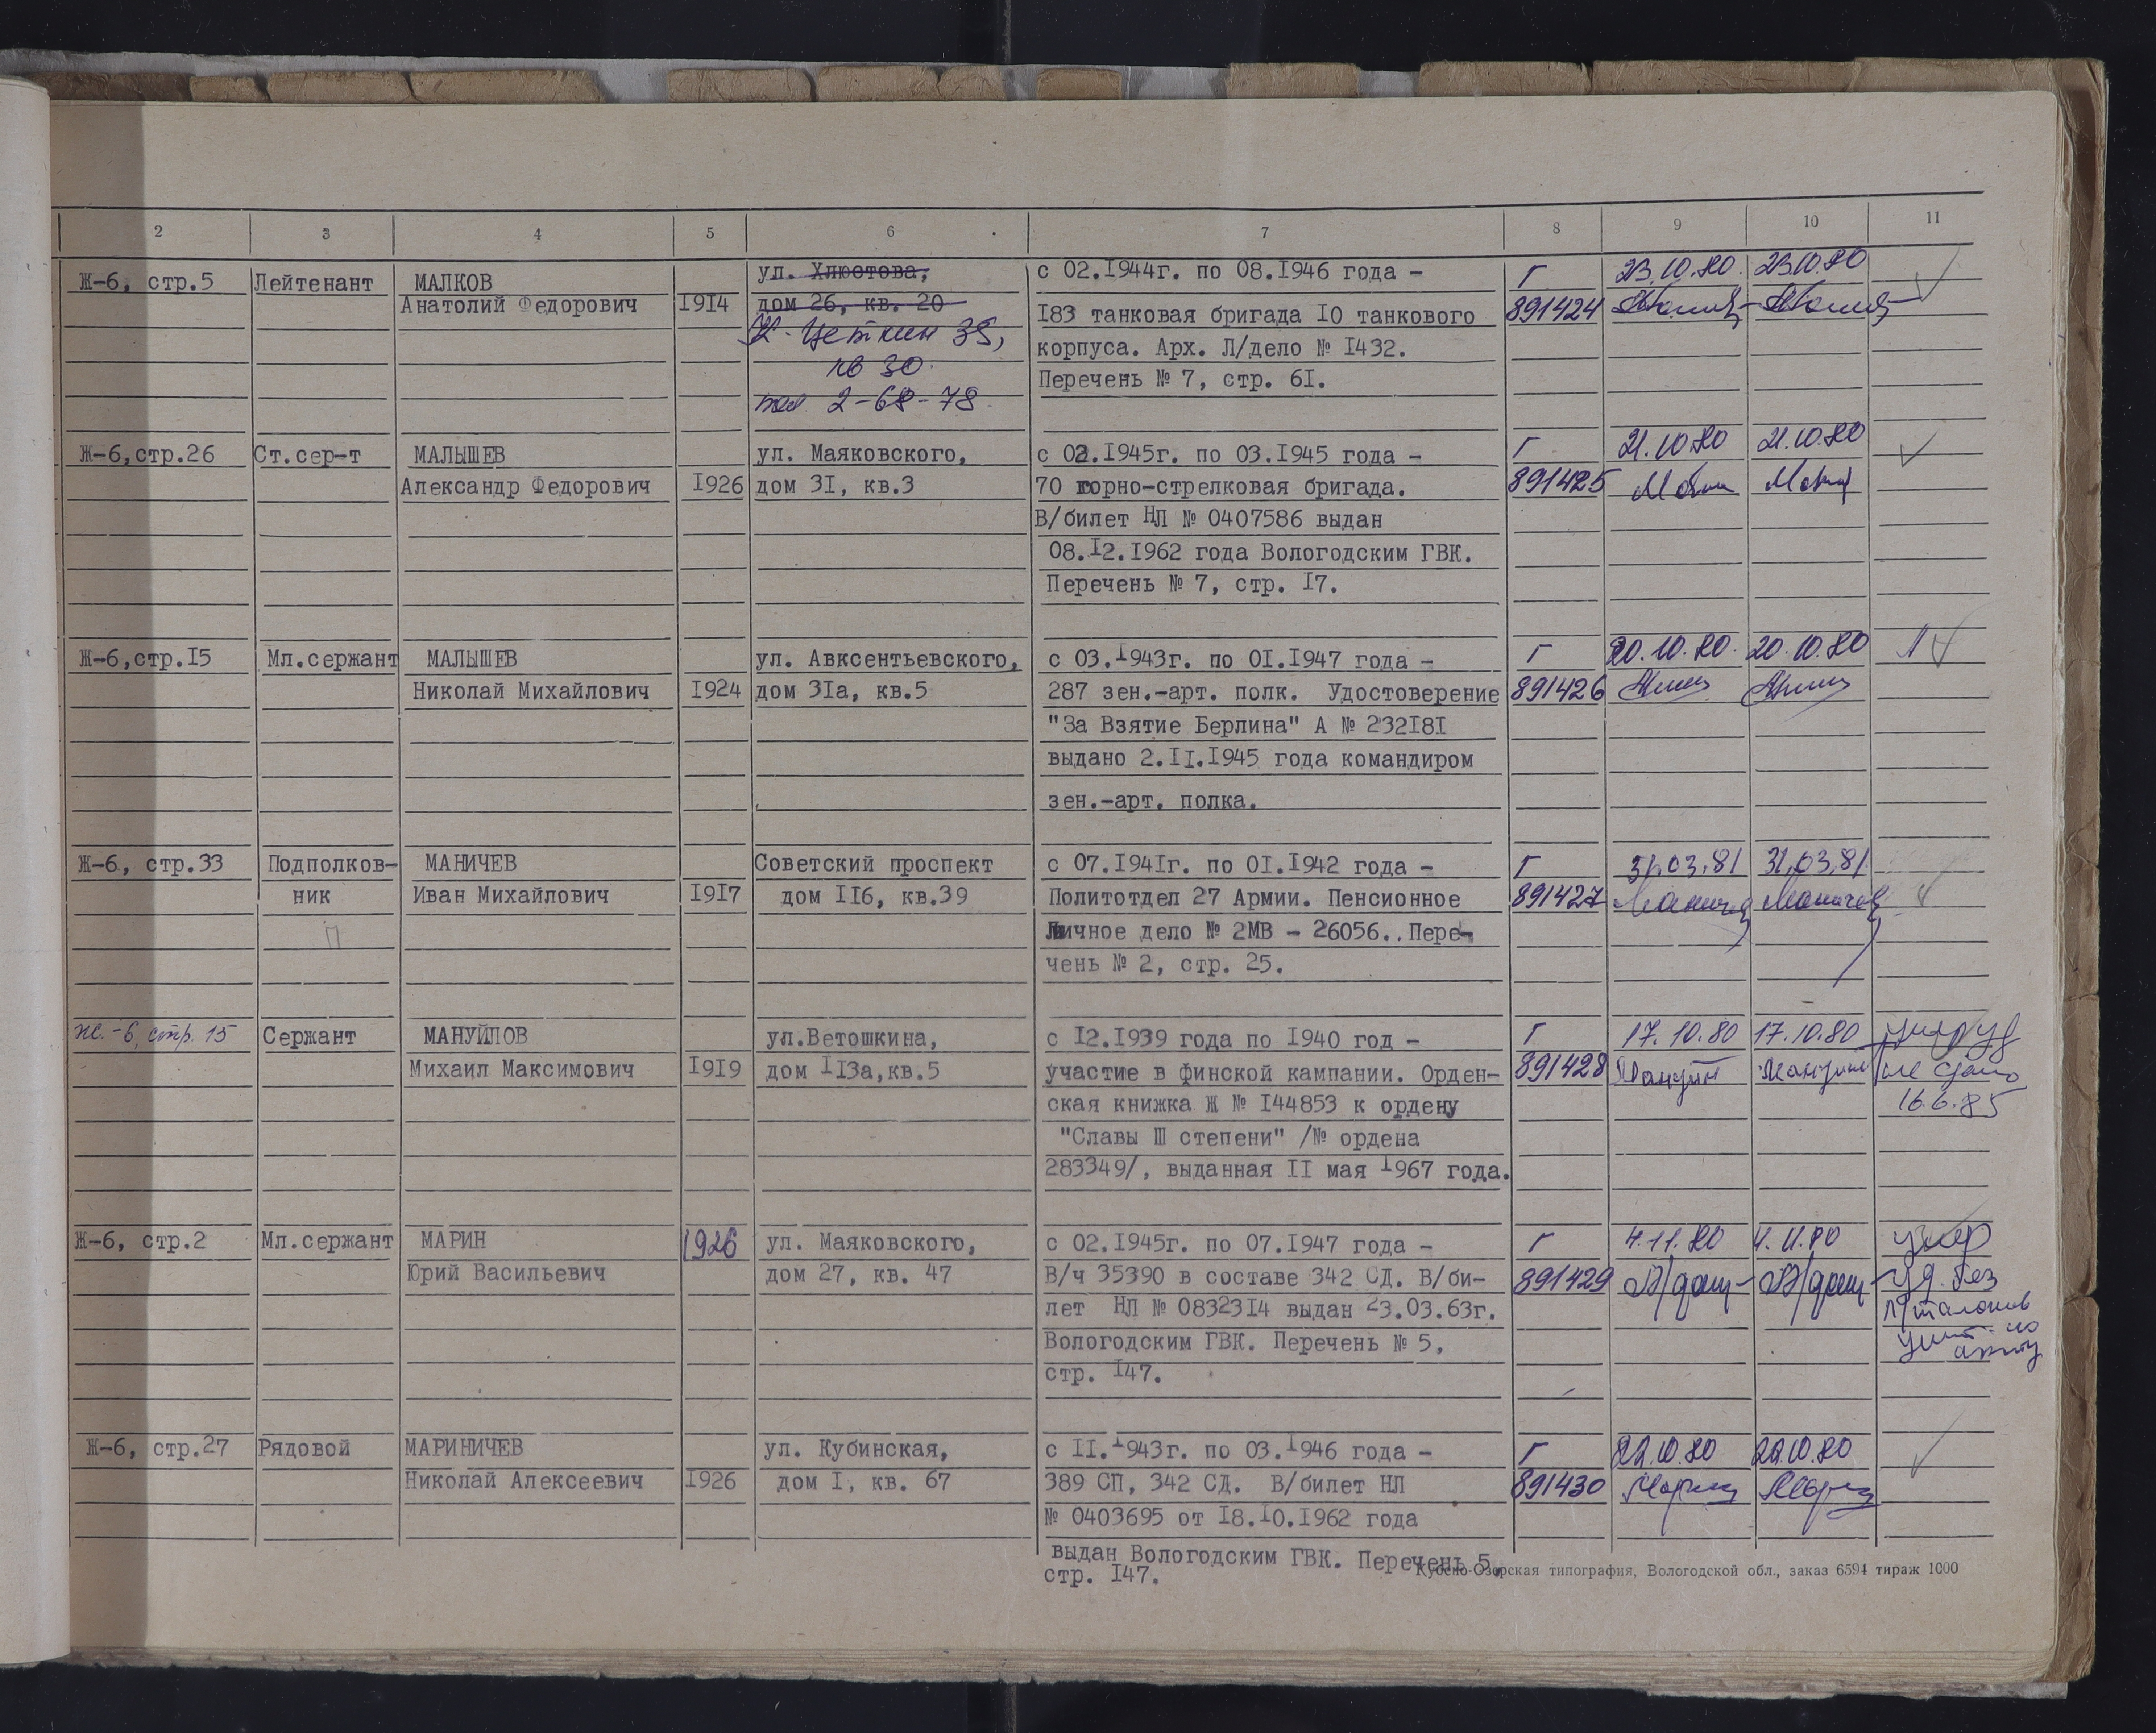 2 3 4 5 6 7 8 9 10 11
Ж-6, стр.5 Лейтенант МАЛКОВ ул. Хлюстова, с 02.1944г. по 08.1946 года - Г 23.10.80. 23.10.80
Анатолий Федорович 1914 дом 26, кв. 20 183 танковая бригада 10 танкового 891424
К. Цеткин 38, корпуса. Арх. Л/дело № 1432.
кв 30. Перечень № 7, стр. 61.
тел 2-68-78.
Ж-6,стр.26 Ст.сер-т МАЛЫШЕВ ул. Маяковского, с 02.1945г. по 03.1945 года - Г 21.10.80 21.10.80
Александр Федорович 1926 дом 31, кв.3 70 горно-стрелковая бригада. 891425
В/билет НЛ № 0407586 выдан
08.12.1962 года Вологодским ГВК.
Перечень № 7, стр. 17.
Ж-6,стр.15 Мл.сержант МАЛЫШЕВ ул. Авксентьевского, с 03.1943г. по 01.1947 года - Г 20.10.80. 20.10.80
Николай Михайлович 1924 дом 31а, кв.5 287 зен.-арт. полк. Удостоверение 891426
"За Взятие Берлина" А № 232181
выдано 2.11.1945 года командиром
зен.-арт. полка.
Ж-6, стр.33 Подполков- МАНИЧЕВ Советский проспект с 07.1941г. по 01.1942 года - Г 31.03.81 31.03.81
ник Иван Михайлович 1917 дом 116, кв.39 Политотдел 27 Армии. Пенсионное 891427 Маничев Маничев
П Личное дело № 2МВ - 26056.. Пере-
чень № 2, стр. 25.
Ж.-6, стр. 15 Сержант МАНУЙЛОВ ул.Ветошкина, с 12.1939 года по 1940 год - Г 17.10.80 17.10.80 умер уд
Михаил Максимович 1919 дом 113а,кв.5 участие в финской кампании. Орден- 891428 не сдано
ская книжка Ж № 144853 к ордену 16.6.85
"Славы III степени" /№ ордена
283349/, выданная 11 мая 1967 года.
Ж-6, стр.2 Мл.сержант МАРИН 1926 ул. Маяковского, с 02.1945г. по 07.1947 года - Г 4.11.80 4.11.80 умер
Юрий Васильевич дом 27, кв. 47 В/ч 35390 в составе 342 СД. В/би- 891429 уд. без
лет НЛ № 0832314 выдан 23.03.63г. талонов
Вологодским ГВК. Перечень № 5, по акту
стр. 147.
Ж-6, стр.27 Рядовой МАРИНИЧЕВ ул. Кубинская, с 11.1943г. по 03.1946 года - Г 22.10.80 22.10.80
Николай Алексеевич 1926 дом 1, кв. 67 389 СП, 342 СД. В/билет НЛ 891430
№ 0403695 от 18.10.1962 года
выдан Вологодским ГВК. Перечень 5,
стр. 147.
Кубено-Озерская типография, Вологодской обл., заказ 6594 тираж 1000